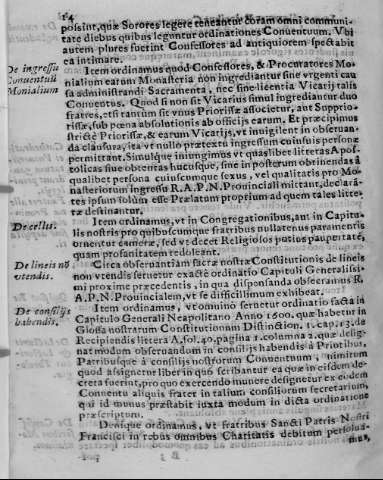 14
possint, quæ Sorores legere teneantur coram omni communi-
tate diebus quibus leguntur ordinationes Conuentuum. Vbi
autem plures fuerint Confessores ad antiquiorem spectabit
ea intimare.
De ingressu Conuentuũ Monialium
Item ordinamus quod Confessores, & Procuratores Mo-
nialium earum Monasteria non ingrediantur sine vrgenti cau
sa administrandi Sacramenta, nec sine licentia Vicarij talis
Conuentus. Quod si non sit Vicarius simul ingrediantur duo
fratres, etsi tantùm sit vnus Priorissæ associetur, aut Supprio-
rissæ, sub pœna absolutionis ab officijs earum. Et præcipimus
strictè Priorissæ, & earum Vicarijs, vt inuigilent in obseruan-
da clausura, ita vt nullo prætextu ingressum cuiusuis personæ
permittant. Simulque iniungimus vt quaslibet litteras Apos-
tolicas siue obtentas hucusque, siue in posterum obtinendas à
qualibet persona cuiuscumque sexus, vel qualitatis pro Mo-
nasteriorum ingressu R. A. P. N. Prouinciali mittant, declarã-
tes ipsum solùm esse Prælatum proprium ad quem tales litte-
ræ destinantur.
De cellis.
Item ordinamus, vt in Congregationibus, aut in Capitu-
lis nostris pro quibuscumque fratribus nullatenus paramentis
ornentur cameræ, sed vt decet Religiosos potius paupertatẽ,
quam profanitatem redoleant.
De lineis nõ vtendis.
Circa obseruantiam sacræ nostræ Constitutionis de lineis
non vtendis seruetur exactè ordinatio Capituli Generalissi-
mi proximè præcedentis, in qua dispensanda obseruamus R.
A. P. N. Prouincialem, vt se difficillimum exhibeat.
De consilijs habendis.
Item ordinamus, vt omninò seruetur ordinatio facta in
Capitulo Generali Neapolitano Anno 1600. quæ habetur in
Glossa nostrarum Constitutionum Distinction. 1. cap. 13. de
Recipiendis littera A, fol. 40. pagina 2. columna 2. quæ desig-
nat modum obseruandum in consilijs habendis à Prioribus,
Patribusque à consilijs nostrorum Conuentuum, nimirum
quod assignetur liber in quo scribantur ea quæ in eisdem de-
creta fuerint, pro quo exercendo munere designetur ex eodem
Conuentu aliquis frater in talium consiliorum secretarium,
qui id munus præstabit iuxta modum in dicta ordinatione
præscriptum.
Denique ordinamus, vt fratribus Sancti Patris Nostri
Francisci in rebus omnibus Charitatis debitum persolua-
mus,